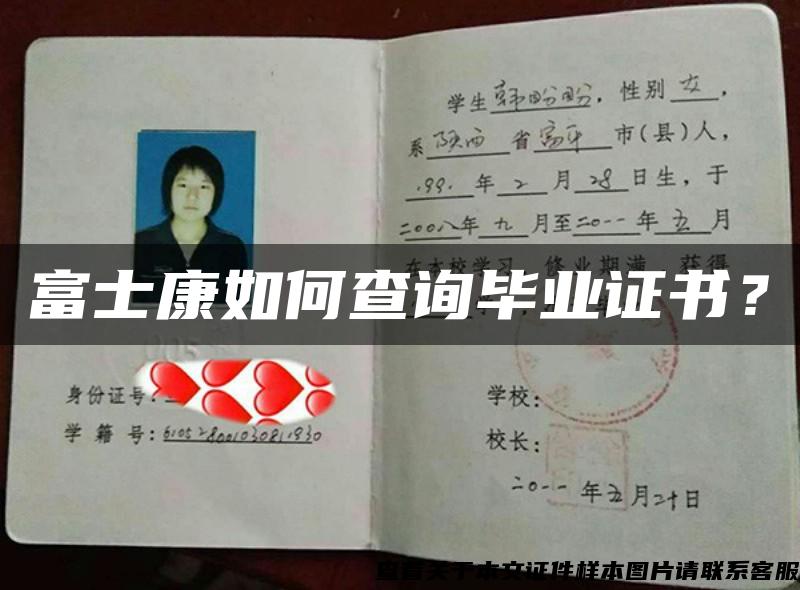 学生韩盼盼，性别女，
系陕西省富平市(县)人，
1991年2月28日生，于
二00八年九月至二0一一年五月
在本校学习 修业期满 获得
富士康如何查询毕业证书？
身份证号：
学籍号：
学校：
校长：
二0一一年五月二十日
查看关于本文证件样本图片请联系客服